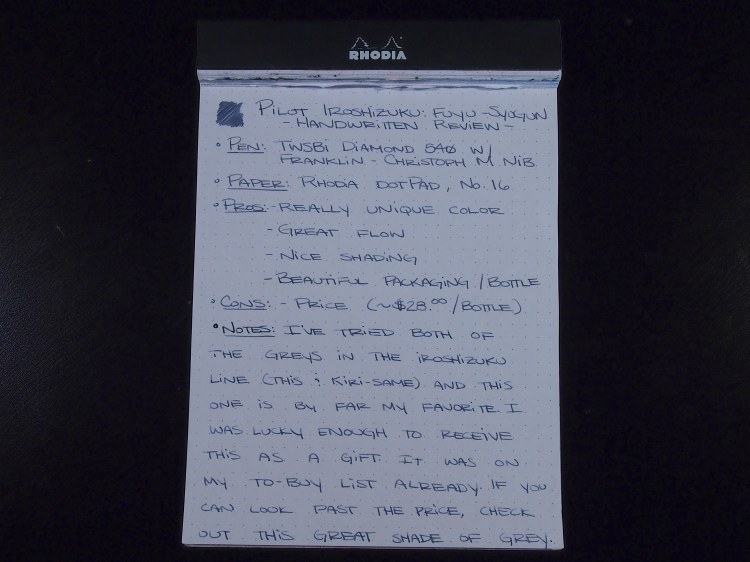 RHODIA
PILOT IROSHIZUKU: FUYU-SYOGUN
- HANDWRITTEN REVIEW -
• PEN: TWSBI DIAMOND 540 W/
FRANKLIN - CHRISTOPH M NIB
• PAPER: RHODIA DOTPAD, NO. 16
• PROS: - REALLY UNIQUE COLOR
- GREAT FLOW
- NICE SHADING
- BEAUTIFUL PACKAGING / BOTTLE
• CONS: - PRICE (~$28.00/BOTTLE)
• NOTES: I'VE TRIED BOTH OF
THE GREYS IN THE IROSHIZUKU
LINE (THIS & KIRI-SAME) AND THIS
ONE IS BY FAR MY FAVORITE. I
WAS LUCKY ENOUGH TO RECEIVE
THIS AS A GIFT. IT WAS ON
MY TO-BUY LIST ALREADY. IF YOU
CAN LOOK PAST THE PRICE, CHECK
OUT THIS GREAT SHADE OF GREY.